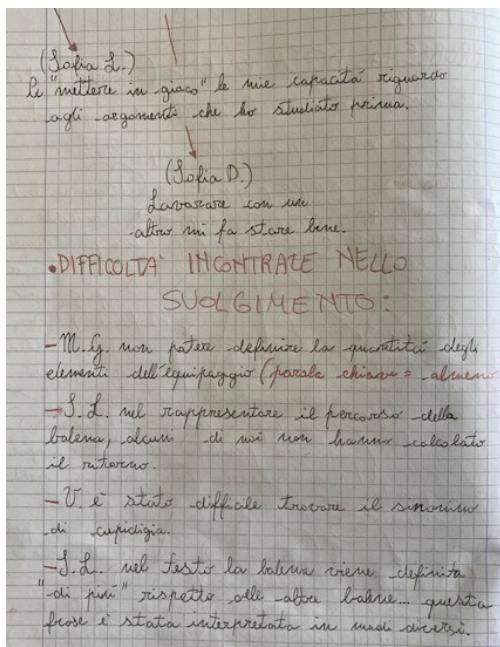 (Sofia L.)
Di "mettere in gioco" le mie capacità riguardo
agli argomenti che ho studiato prima.
(Sofia D.)
Lavorare con un
altro mi fa stare bene.
• DIFFICOLTA' INCONTRATE NELLO
SVOLGIMENTO:
- M.G. non potere definire la quantità degli
elementi dell'equipaggio (parola chiave = almeno
- S.L. nel rappresentare il percorso della
balena, alcuni di noi non hanno calcolato
il ritorno.
- V. è stato difficile trovare il sinonimo
di cupidigia.
- S.L. nel testo la balena viene definita
"di più" rispetto alle altre balene... questa
frase è stata interpretata in modi diversi.